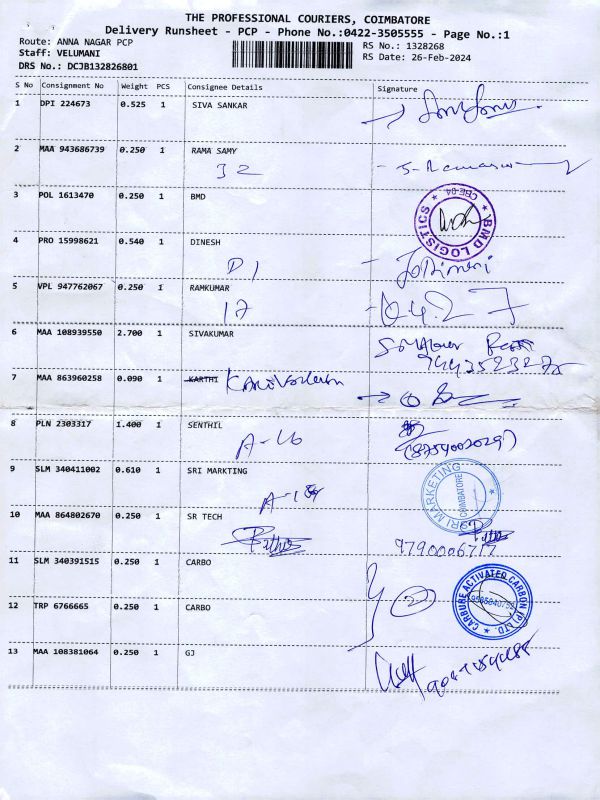 THE PROFESSIONAL COURIERS, COIMBATORE
Delivery Runsheet - PCP - Phone No.:0422-3505555 - Page No.:1
Route: ANNA NAGAR PCP
RS No.: 1328268
Staff: VELUMANI
RS Date: 26-Feb-2024
DRS No.: DCJB132826801
S No Consignment No Weight PCS Consignee Details Signature
1 DPI 224673 0.525 1 SIVA SANKAR
2 MAA 943686739 0.250 1 RAMA SAMY
32
3 POL 1613470 0.250 1 BMD
BMD LOGISTICS * CBE-04 *
4 PRO 15998621 0.540 1 DINESH
D1
5 VPL 947762067 0.250 1 RAMKUMAR
17
6 MAA 108939550 2.700 1 SIVAKUMAR
7 MAA 863960258 0.090 1 KARTHI
8 PLN 2303317 1.400 1 SENTHIL
A-16
9 SLM 340411002 0.610 1 SRI MARKTING
SRI MARKETING * COIMBATORE
10 MAA 864802670 0.250 1 SR TECH
11 SLM 340391515 0.250 1 CARBO
CARBURE ACTIVATED CARBON (P) LTD. *
12 TRP 6766665 0.250 1 CARBO
2
13 MAA 108381064 0.250 1 GJ